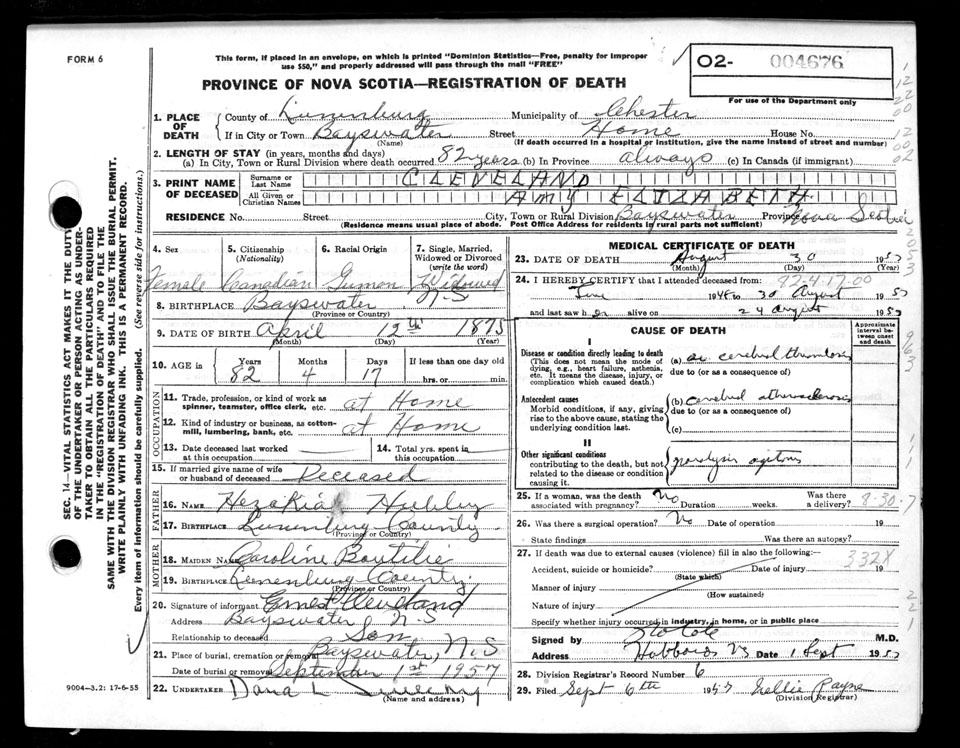 FORM 6
This form, if placed in an envelope, on which is printed "Dominion Statistics—Free, penalty for improper
use $50," and properly addressed will pass through the mail "FREE"
O2- 004676
PROVINCE OF NOVA SCOTIA—REGISTRATION OF DEATH
For use of the Department only
1. PLACE OF DEATH
County of Lunenburg Municipality of Chester
If in City or Town Bayswater Street Home House No.
(Name) (If death occurred in a hospital or institution, give the name instead of street and number)
2. LENGTH OF STAY (in years, months and days)
(a) In City, Town or Rural Division where death occurred 82 years (b) In Province always (c) In Canada (if immigrant)
3. PRINT NAME OF DECEASED
Surname or Last Name CLEVELAND
All Given or Christian Names AMY ELIZABETH
RESIDENCE No. Street City, Town or Rural Division Bayswater Province Nova Scotia
(Residence means usual place of abode. Post Office Address for residents in rural parts not sufficient)
4. Sex
Female
5. Citizenship
(Nationality)
Canadian
6. Racial Origin
7. Single, Married,
Widowed or Divorced
(write the word)
Widowed
8. BIRTHPLACE Bayswater N.S
(Province or Country)
9. DATE OF BIRTH April 12th 1875
(Month) (Day) (Year)
10. AGE in
Years Months Days If less than one day old
82 4 17 hrs. or min.
OCCUPATION
11. Trade, profession, or kind of work as
spinner, teamster, office clerk, etc. at Home
12. Kind of industry or business, as cotton-
mill, lumbering, bank, etc. at Home
13. Date deceased last worked
at this occupation
14. Total yrs. spent in
this occupation
15. If married give name of wife
or husband of deceased Deceased
FATHER
16. NAME Hezakia Hubley
17. BIRTHPLACE Lunenburg County
(Province or Country)
MOTHER
18. MAIDEN NAME Caroline Boutilie
19. BIRTHPLACE Lunenburg County
(Province or Country)
20. Signature of informant Ernest Cleveland
Address Bayswater N.S
Relationship to deceased Son
21. Place of burial, cremation or removal Bayswater, N.S
Date of burial or removal September 1st 1957
22. UNDERTAKER Dana L
(Name and address)
9004-3.2: 17-6-55
SEC. 14—VITAL STATISTICS ACT MAKES IT THE DUTY
OF THE UNDERTAKER OR PERSON ACTING AS UNDER-
TAKER TO OBTAIN ALL THE PARTICULARS REQUIRED
IN THE "REGISTRATION OF DEATH" AND TO FILE THE
SAME WITH THE DIVISION REGISTRAR WHO SHALL ISSUE THE BURIAL PERMIT.
WRITE PLAINLY WITH UNFADING INK. THIS IS A PERMANENT RECORD.
Every item of information should be carefully supplied. (See reverse side for instructions.)
MEDICAL CERTIFICATE OF DEATH
23. DATE OF DEATH August 30 1957
(Month) (Day) (Year)
24. I HEREBY CERTIFY that I attended deceased from:
92417-00
June 1948 to 30 August 1957
and last saw her alive on 24 August 1957
CAUSE OF DEATH
Approximate
interval be-
tween onset
and death
I
Disease or condition directly leading to death
(This does not mean the mode of
dying, e.g., heart failure, asthenia,
etc. It means the disease, injury, or
complication which caused death.)
(a) ac cerebral thrombosis
due to (or as a consequence of)
Antecedent causes
Morbid conditions, if any, giving
rise to the above cause, stating the
underlying condition last.
(b) cerebral atherosclerosis
due to (or as a consequence of)
(c)
II
Other significant conditions
contributing to the death, but not
related to the disease or condition
causing it.
paralysis agitans
25. If a woman, was the death
associated with pregnancy? No Duration weeks. Was there
a delivery? 8-30-7
26. Was there a surgical operation? No Date of operation 19
State findings Was there an autopsy?
27. If death was due to external causes (violence) fill in also the following:—
332X
Accident, suicide or homicide? Date of injury 19
(State which)
Manner of injury
(How sustained)
Nature of injury
Specify whether injury occurred in industry, in home, or in public place
Signed by M.D.
Address Hubbards NS Date 1 Sept 1957
28. Division Registrar's Record Number 6
29. Filed Sept 6th 1957 Nellie Payne
(Division Registrar)